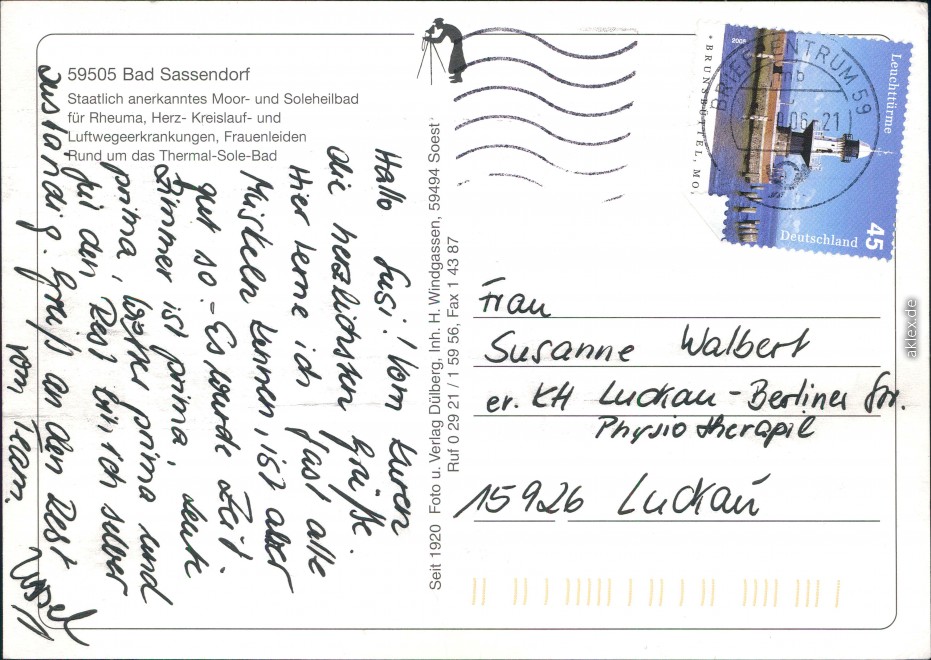 59505 Bad Sassendorf
Staatlich anerkanntes Moor- und Soleheilbad
für Rheuma, Herz- Kreislauf- und
Luftwegeerkrankungen, Frauenleiden
Rund um das Thermal-Sole-Bad
Hallo Susi! Vom Kuren
die herzlichsten Grüße.
Hier lerne ich fast alle
Muskeln kennen, ist aber
gut so. - Es wurde Zeit.
Zimmer ist prima Leute
prima, Wetter prima und
für den Rest bin ich selber
zuständig. Gruß an den Rest
vom Team.
Seit 1920 Foto u. Verlag Dülberg, Inh. H. Windgassen, 59494 Soest
Ruf 0 29 21 / 1 59 56, Fax 1 43 87
BRIEFZENTRUM 59
21
2005
Leuchttürme
BRUNSBÜTTEL, MO
Deutschland
45
Frau
Susanne Walbert
ev. KH Luckau - Berliner Str.
Physiotherapie
15926 Luckau
aklex.de